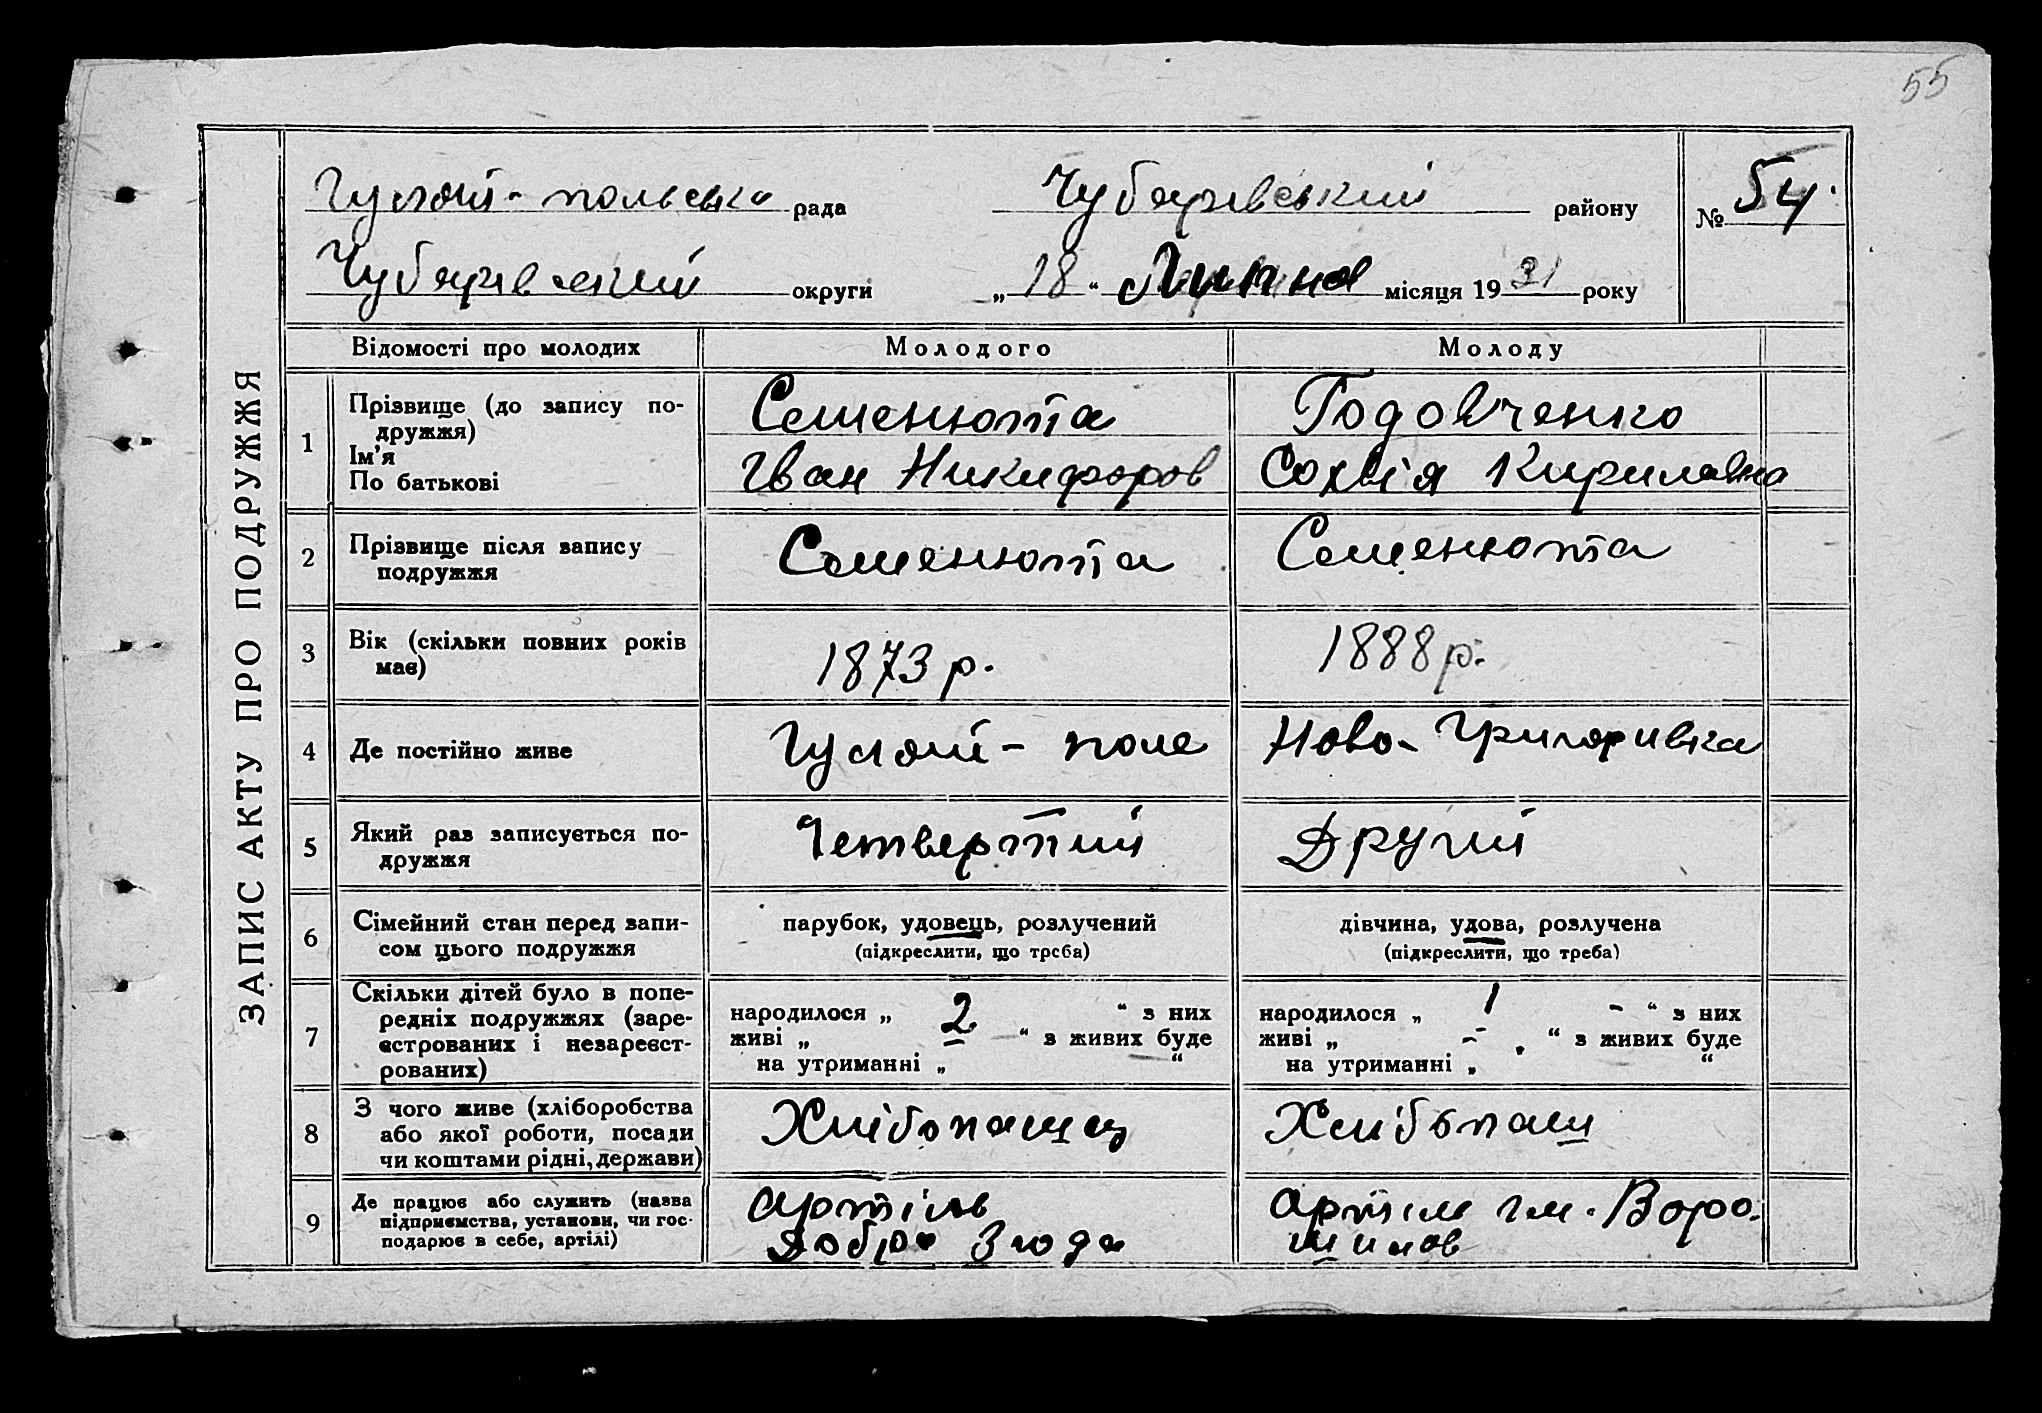 55
ЗАПИС АКТУ ПРО ПОДРУЖЖЯ
Гуляй-польська рада Чубарівський району № 54.
Чубарівський округи „18“ Липня місяця 1931 року
Відомості про молодих Молодого Молоду
1 Прізвище (до запису по-
дружжя)
Ім'я
По батькові
Семенюта
Іван Никифоров
Годовченко
Сохвія Кириловна
2 Прізвище після запису
подружжя
Семенюта
Семенюта
3 Вік (скільки повних років
має)
1873 р.
1888 р.
4 Де постійно живе
Гуляй-поле
Ново-Григоривка
5 Який раз записується по-
дружжя
Четвертий
Другий
6 Сімейний стан перед запи-
сом цього подружжя
парубок, удовець, розлучений
(підкреслити, що треба)
дівчина, удова, розлучена
(підкреслити, що треба)
7 Скільки дітей було в попе-
редніх подружжях (заре-
єстрованих і незареєст-
рованих)
народилося „ 2 “ з них
живі „ – — “ з живих буде
на утриманні „ — “
народилося „ 1 - “ з них
живі „ - “ з живих буде
на утриманні „ “
8 З чого живе (хліборобства
або якої роботи, посади
чи коштами рідні, держави)
Хлібопашец
Хлібопаш
9 Де працює або служить (назва
підприємства, установи, чи гос-
подарює в себе, артілі)
Артіль
Добра Згода
Артіль ім. Воро-
шилов